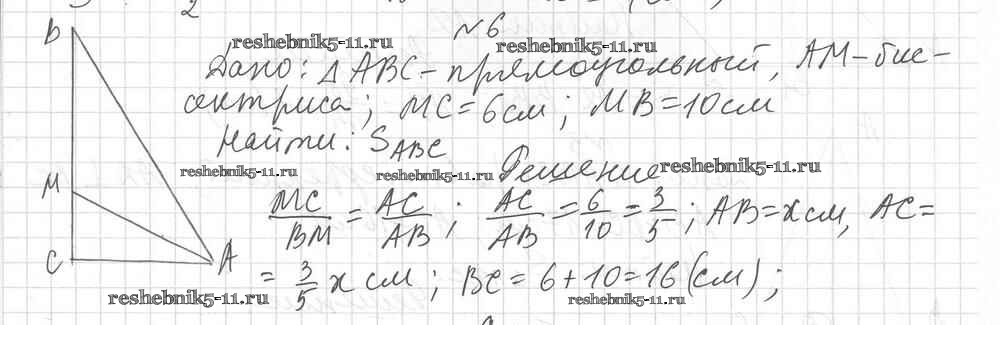 N 6
reshebnik5-11.ru reshebnik5-11.ru
B
Дано: Δ ABC - прямоугольный, AM - бис-
сектриса; MC = 6 см; MB = 10 см
Найти: S_ABC
reshebnik5-11.ru reshebnik5-11.ru Решение reshebnik5-11.ru
M
MC/BM = AC/AB; AC/AB = 6/10 = 3/5; AB = x см, AC =
C A
= 3/5 x см; BC = 6 + 10 = 16 (см);
reshebnik5-11.ru reshebnik5-11.ru